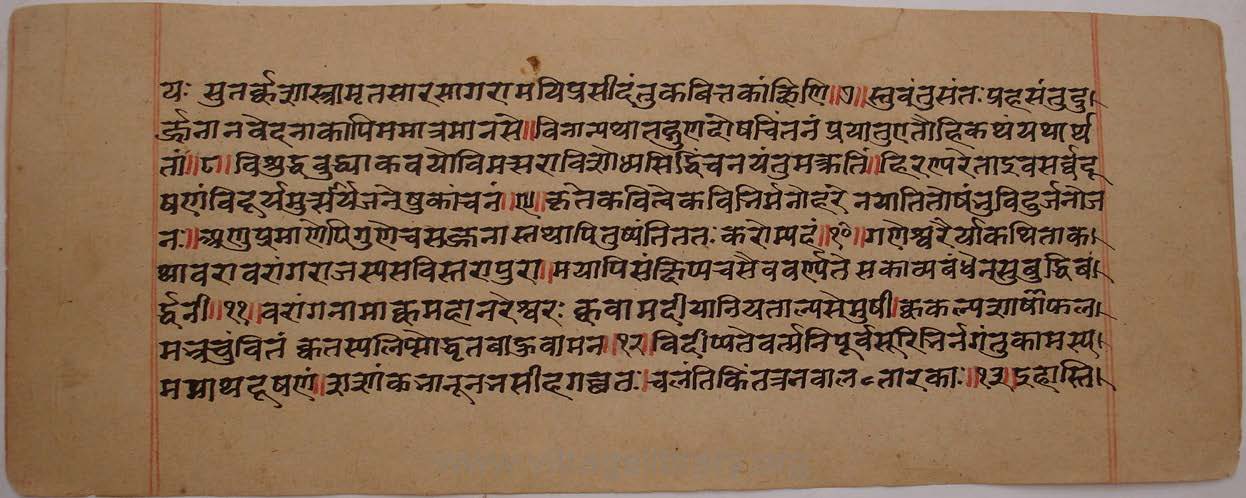 यः सुतर्क्कशास्त्रामृतसारसागरा मयि प्रसीदंतु कवित्तकांक्षिणि॥७॥स्तुवंतु संतः प्रहसंतु दु।
र्ज्जना न वेदना कापि ममात्र मानसे॥विनान्यथा तद्गुणदोषचिंतनं प्रयातु णतौ हि कथं यथार्थ
तां॥८॥विशुद्धबुद्ध्या कवयो विमत्सरा विशोध्य सिद्धिं च नयंतु मत्कृतिं॥हिरण्यरेता इव सर्व्वदू
षणं विदूर्यमुत्सर्यि जनेषु कांचनं॥९॥कृते कवित्वे कविभिर्मनोहरे न याति तोषं भुवि दुर्जनो ज
नः॥अणुप्रमाणेपि गुणे च सज्जनास्तथापि तुष्यंति ततः करोम्पदं॥१०॥गणेश्वरैर्या कथिता क।
था वरा वरांगराजस्य सविस्तरा पुरा॥मयापि संक्षिप्य च सैव वर्ण्यते सकाव्यबंधेन सुबुद्धिबं।
र्द्धनी॥११॥वरांगनामा क्व महानरेश्वरः क्व वा मदीया नियताल्पसेमुषी॥क्व कल्पशाषीफल।
मभ्रचुंवितं क्व तस्य लिप्सोद्धृतबाहुवामन॥१२॥विदीप्यते वर्त्मनि पूर्वसूरिभिर्न गंतुकामस्य।
ममाथ दूषणं॥शशांकभानू नभसीह गच्छतः चलंति किं तत्र न वाल तारकाः॥१३॥इहास्ति।
www.vitragelibrary.org